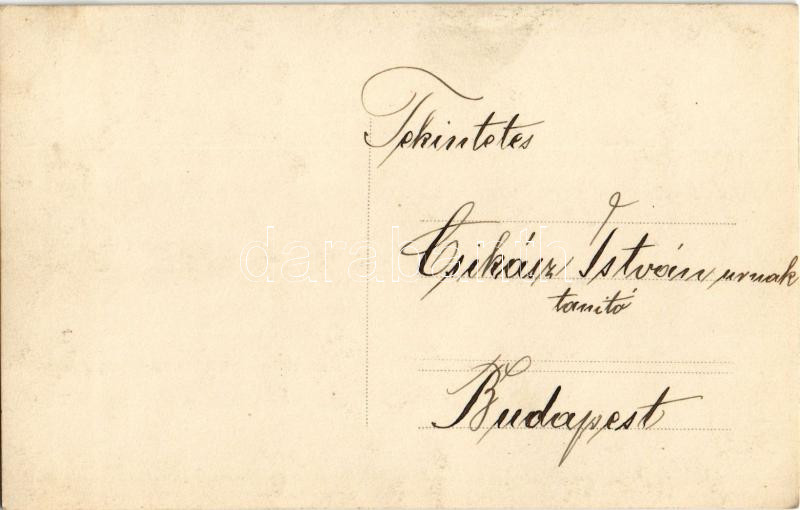 Tekintetes
Csikász István urnak
tanító
Budapest